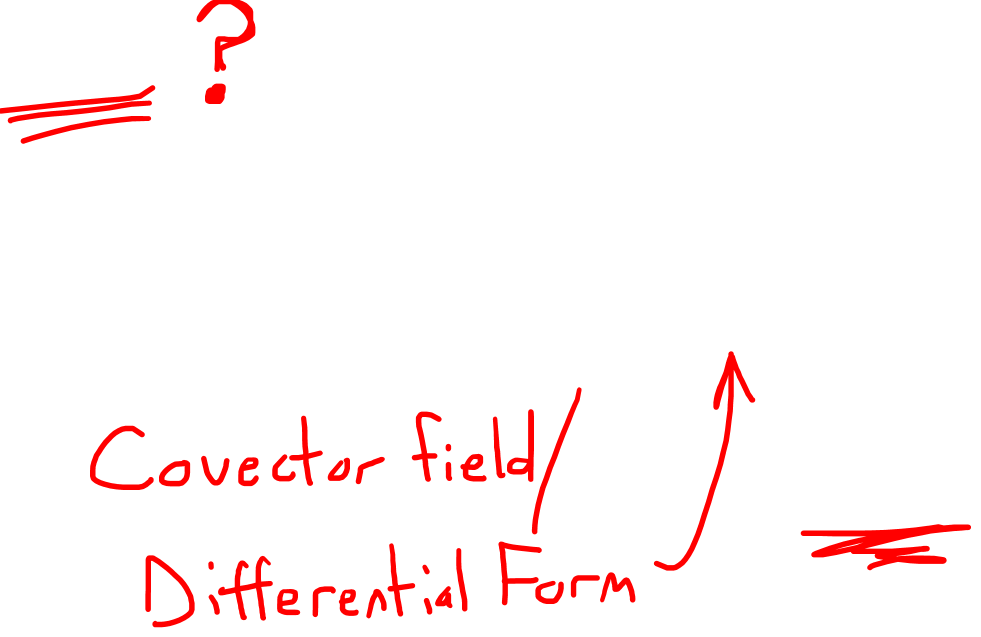 ?
Covector field/
Differential Form